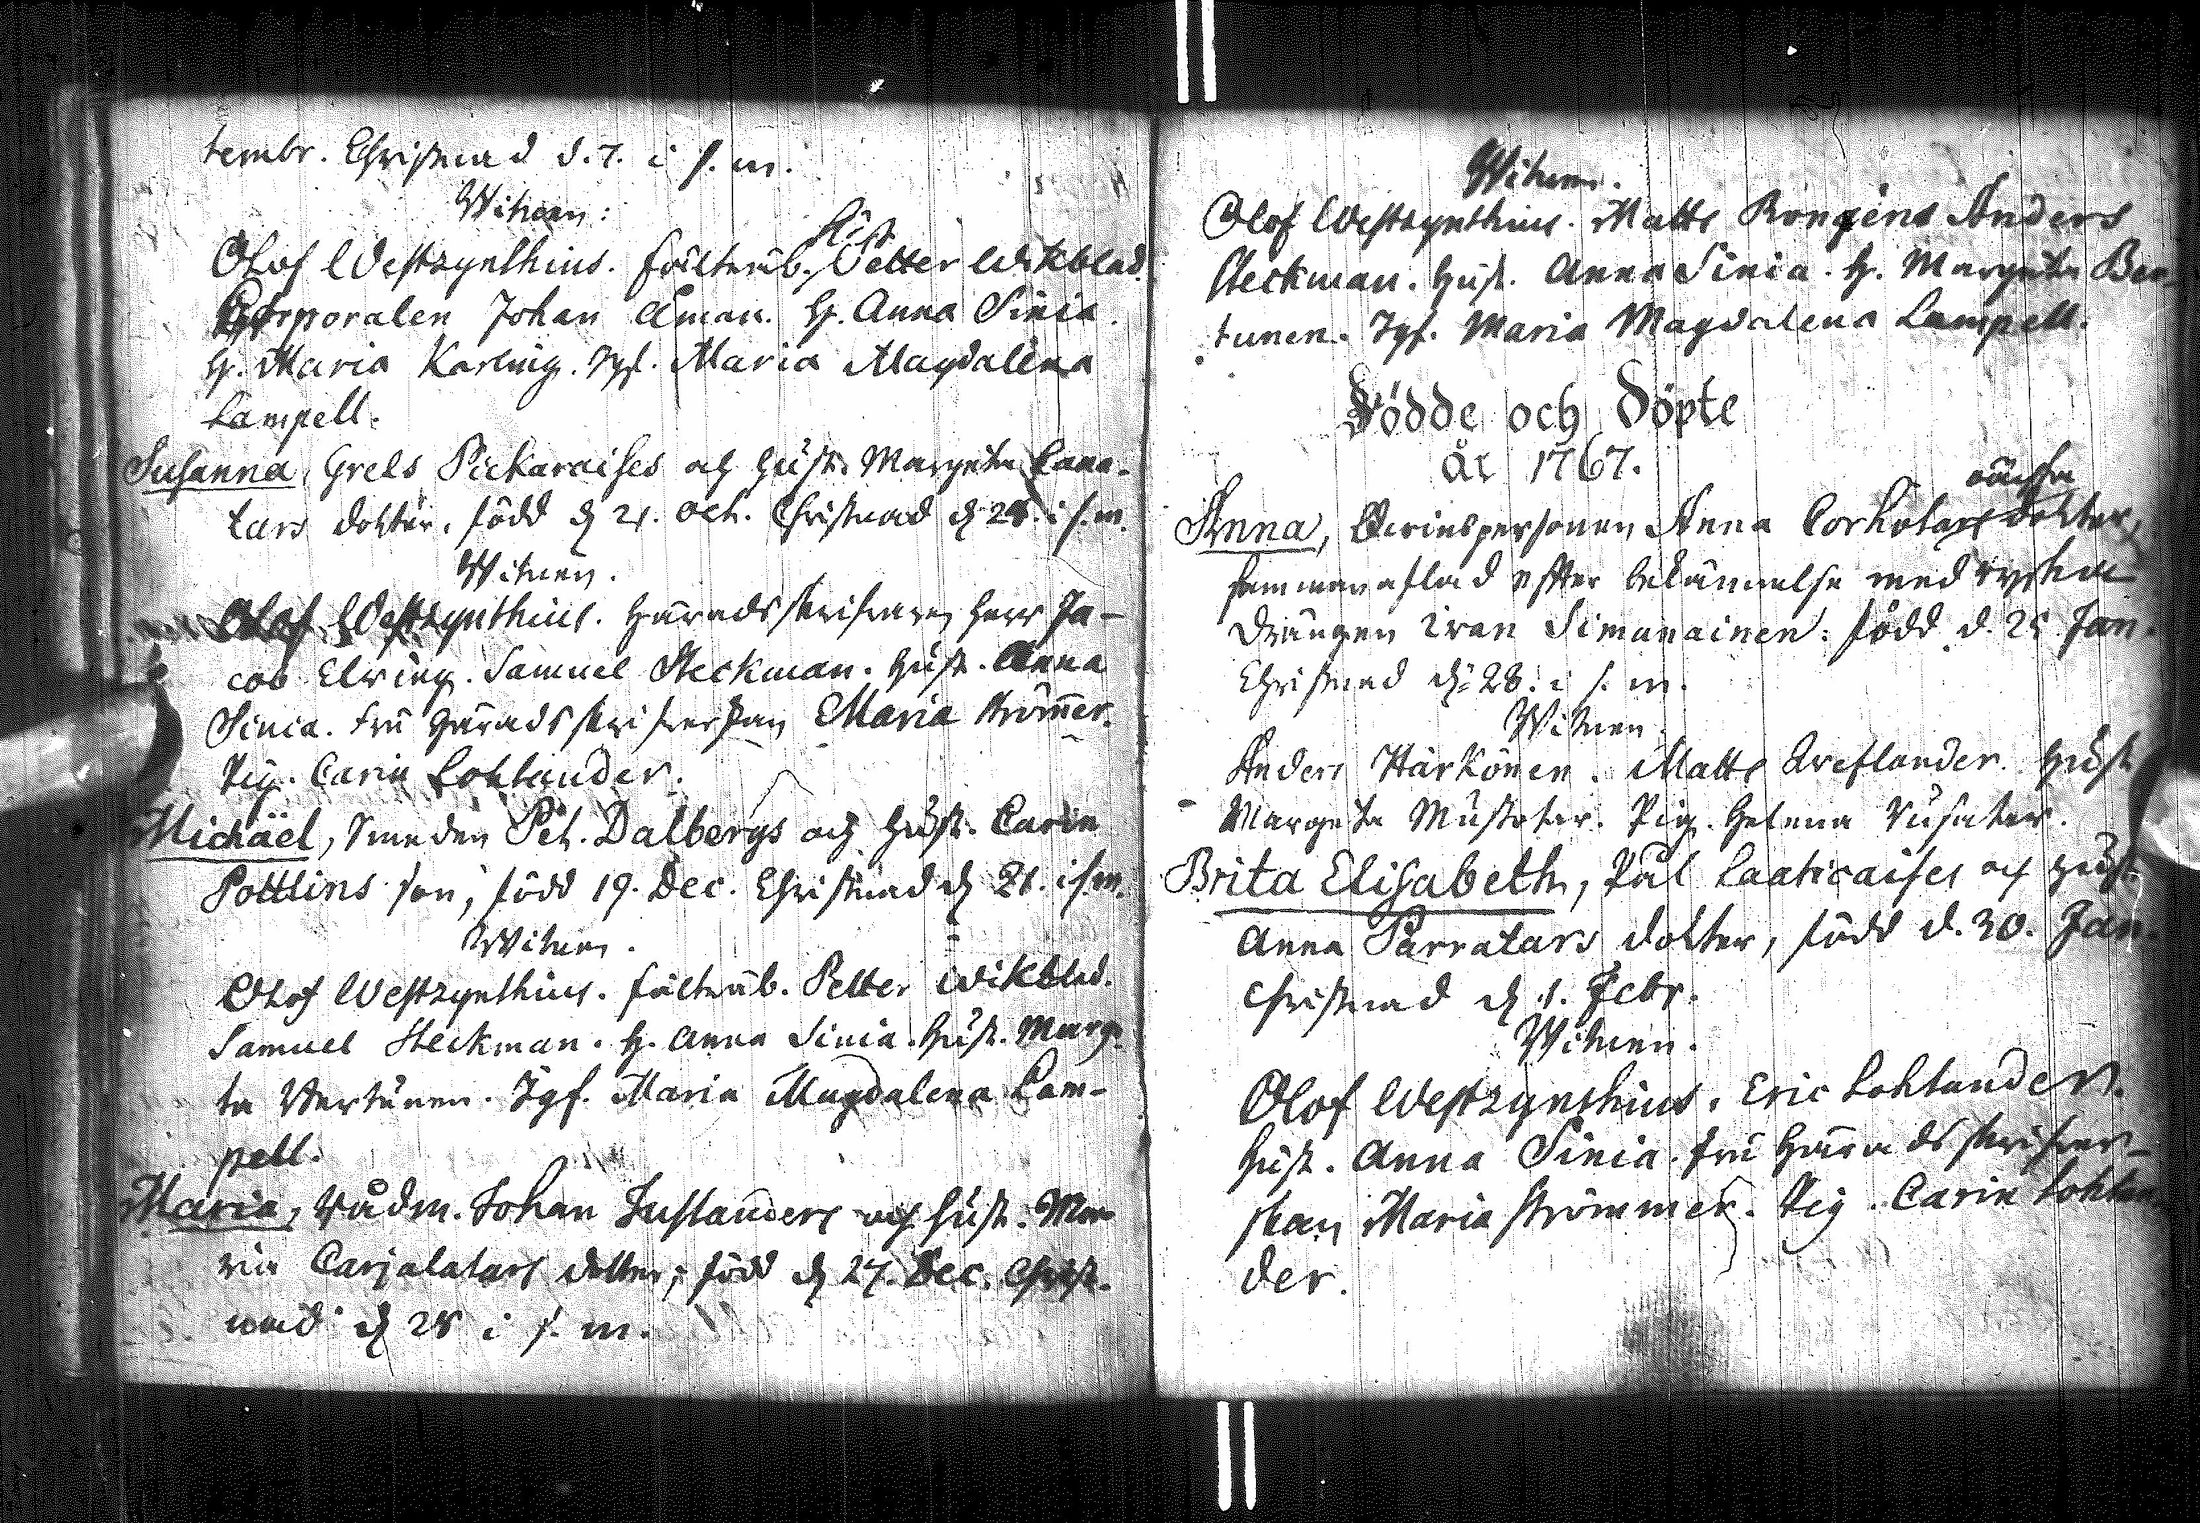 tembr. Christnad d. 7. i s. m.
Witnen:
Olof Westzynthius. fältväb. Petter Wikblad.
Corporalen Johan Åman. H. Anna Sinia.
H. Maria Karling. Jgf. Maria Magdalena
Lampell.
Susanna, Grels Pickaraises och Hust. Margeta Lana-
tars dotter, född d. 21. Oct. Christnad d. 24. i s. m.
Witnen.
Olof Westzynthius. Häradsskrifvaren Herr Ja-
cob Elving. Samuel Steckman. Hust. Anna
Sinia. Fru Häradsskrifverskan Maria Strömer.
Pig. Carin Lohlander.
Michäel, Smeden Pet. Dalbergs och Hust. Carin
Pottlins son, född 19. Dec. Christnad d. 21. i s. m.
Witnen.
Olof Westzynthius. fältväb. Petter Wikblad.
Samuel Steckman. H. Anna Sinia. Hust. Marge-
ta Vertunen. Jgf. Maria Magdalena Lam-
pell.
Maria, Rådm. Johan Justanders och Hust. Ma-
ria Carjalatars dotter, född d. 27. Dec. Christ-
nad d. 28 i s. m.
Witnen.
Olof Westzynthius. Matts Rongins Anders
Steckman. Hust. Anna Sinia. H. Margeta Ver-
tunen. Jgf. Maria Magdalena Lampell.
Födde och Döpte
år 1767.
oächta
Anna, Qvinspersonen Anna Corhotars dotter,
sammanaflad efter bekännelse med ryska
Drängen Ivan Simanainen: född d. 25 Jan.
Christnad d. 28. i s. m.
Witnen.
Anders Härkönen. Matts Qveflander. Hust.
Margeta Mustotar. Pig. Helena Rusatar.
Brita Elisabeth, Pål Laaticaises och Hust.
Anna Parratars dotter, född d. 30. Jan.
Christnad d. 1. Febr.
Witnen.
Olof Westzynthius. Eric Lohlander.
Hust. Anna Sinia. Fru Häradsskrifver-
skan Maria Strömmer. Pig. Carin Lohlan
der.